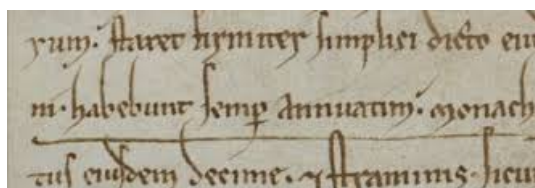 rum. staret firmiter simplici dicto eiu
ni. habebunt semp annuatim. monach
tus eiusdem decime. ⁊ straminis. sicu